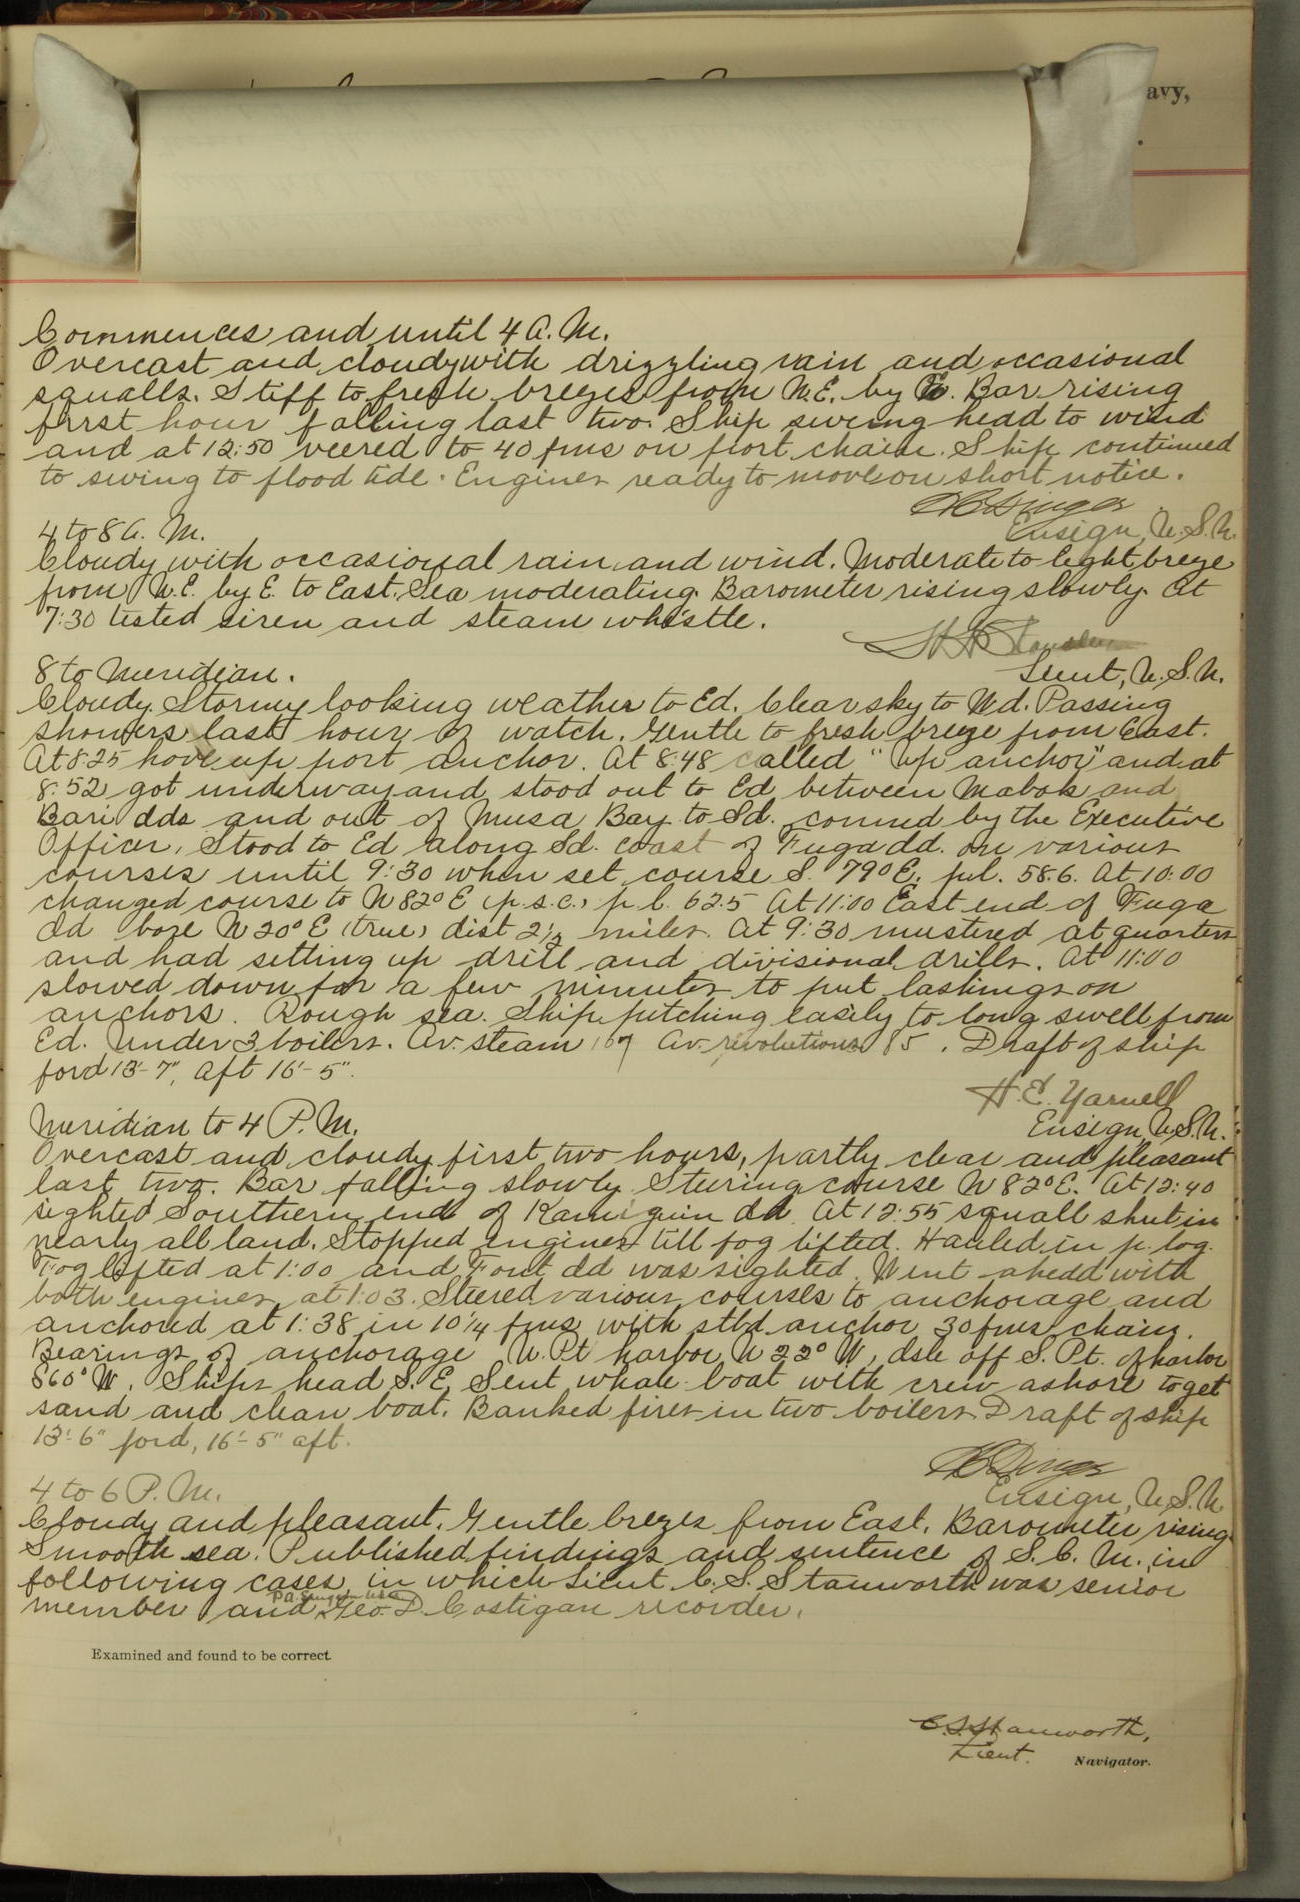 avy,
Commences and until 4 A.M.
Overcast and cloudy with drizzling rain and occasional
squalls. Stiff to fresh breezes from N.E. by E. Bar rising
first hour falling last two. Ship swung head to wind
and at 12:50 veered to 40 fms on port chain. Ship continued
to swing to flood tide. Engines ready to move on short notice.
Ensign, U.S.N.
4 to 8 A.M.
Cloudy with occasional rain and wind. Moderate to light breeze
from N.E. by E. to East. Sea moderating. Barometer rising slowly. At
7:30 tested siren and steam whistle.
Lieut, U.S.N.
8 to Meridian.
Cloudy. Stormy looking weather to Ed. Clear sky to Wd. Passing
showers last hour of watch. Gentle to fresh breeze from East.
At 8:25 hove up port anchor. At 8:48 called "Up anchor" and at
8:52 got underway and stood out to Ed between Mabok and
Bari Ids and out of Musa Bay to Sd. conned by the Executive
Officer. Stood to Ed along Sd. coast of Fuga Id. on various
courses until 9:30 when set course S. 79° E. p.l. 58.6. At 10:00
changed course to N 82° E (p.s.c.) p.l. 62.5 At 11:00 East end of Fuga
Id bore N 20° E (true) dist 2½ miles. At 9:30 mustered at quarters
and had setting up drill and divisional drills. At 11:00
slowed down for a few minutes to put lashings on
anchors. Rough sea. Ship pitching easily to long swell from
Ed. Under 3 boilers. Av. steam 167 Av. revolutions 85. Draft of ship
ford 13'-7", aft 16'-5".
H.E. Yarnell
Ensign U.S.N.
Meridian to 4 P.M.
Overcast and cloudy first two hours, partly clear and pleasant
last two. Bar falling slowly. Steering course N 82° E. At 12:40
sighted Southern end of Kamiguin Id. At 12:55 squall shut in
nearly all land. Stopped engines till fog lifted. Hauled in p. log.
Fog lifted at 1:00 and Font Id was sighted. Went ahead with
both engines at 1:03. Steered various courses to anchorage and
anchored at 1:38 in 10¼ fms with stbd anchor 30 fms chain.
Bearings of anchorage N. Pt harbor N 22° W, Isle off S. Pt. of harbor
S60° W. Ships head S.E. Sent whale boat with crew ashore to get
sand and clean boat. Banked fires in two boilers. Draft of ship
13'-6" ford, 16'-5" aft.
Ensign, U.S.N.
4 to 6 P.M.
Cloudy and pleasant. Gentle brezes from East. Barometer rising.
Smooth sea. Published findings and sentence of S.C.M. in
following cases in which Lieut C.S. Stanworth was senior
member and Geo. D. Costigan recorder.
Examined and found to be correct.
C.S. Stanworth,
Lieut. Navigator.